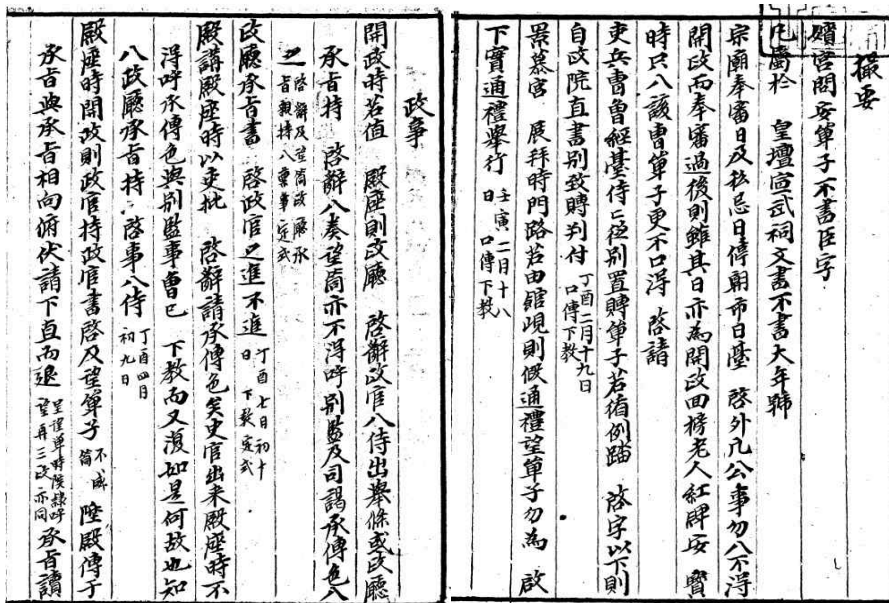 撮要
殯宮問安單子不書臣字
凡屬於 皇壇宣武祠文書不書大年號
宗廟奉審日及私忌日停朝市日臺 啓外凡公事勿入不得
開政而奉審過後則雖其日亦爲開政回榜老人紅牌安 寶
時只入該曹單子更不口得 啓請
吏兵書曾經臺侍之從別置賻單子若循例踏 啓字以下則
自政院直書別致賻判付 丁酉二月十九日口傳下教
景慕宮 展拜時門路若由館峴則假通禮望單子勿爲 啟
下實通禮擧行 壬寅二月十八日口傳下教
政事
開政時若値 殿座則政廳 啓辭政官入侍出擧條或政廳
承旨持 啓辭入奏望筒亦不得呼別監及司謁承傳色入
之 啓辭及望筒政廳承旨親持入稟事定式
政廳承旨書 啓政官之進不進 丁酉七月初十日下教定式
殿講殿座時以吏批 啓辭請承傳色矣史官出來殿座時不
得呼承傳色與別監事曾已 下教而又復如是何故也知
入政廳承旨持 啓事入侍 丁酉四月初九日
殿座時開政則政官持政官書啓及望單子 不成筒 陞殿傳于
承旨與承旨相向俯伏請下直而退 呈望單時喉隷呼望再三政亦同 承旨讀